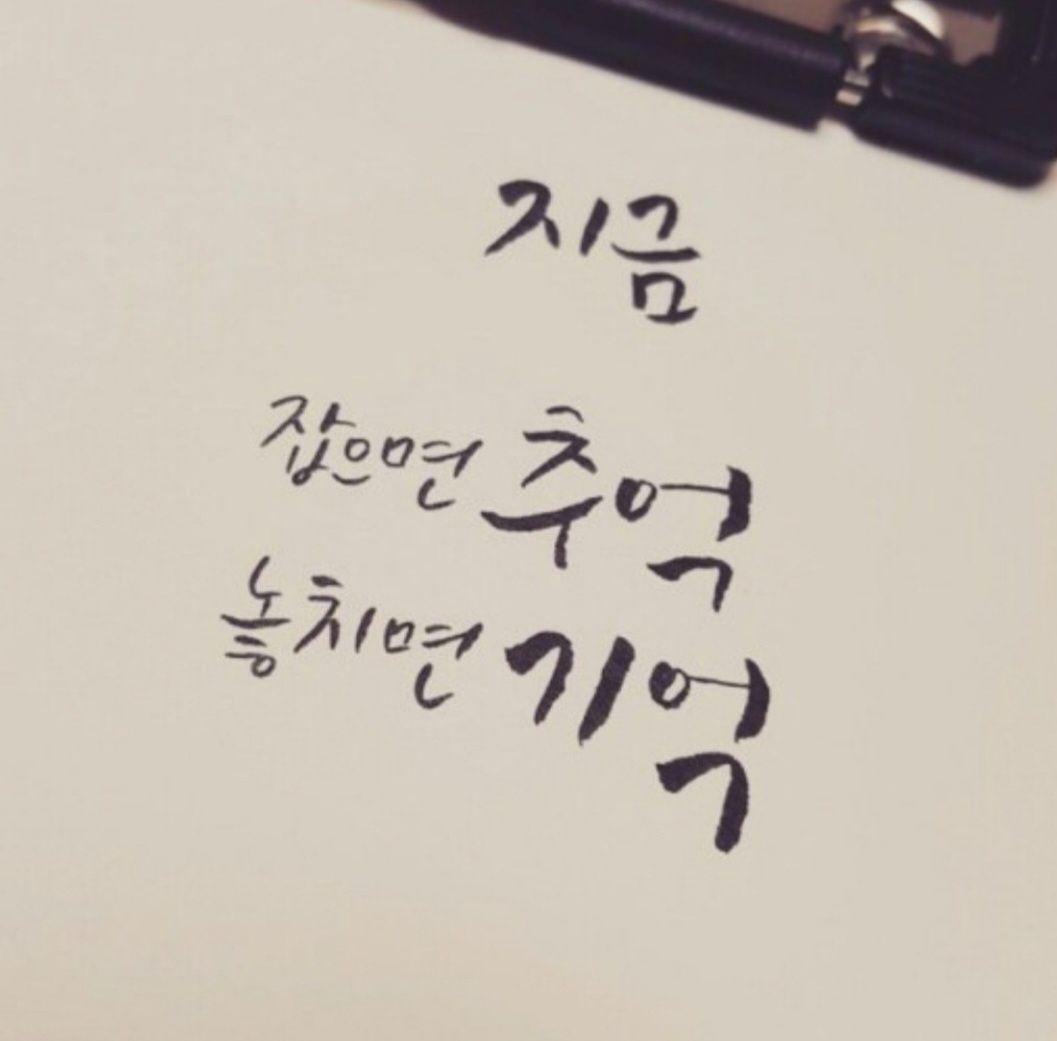 지금
잡으면 추억
놓치면 기억